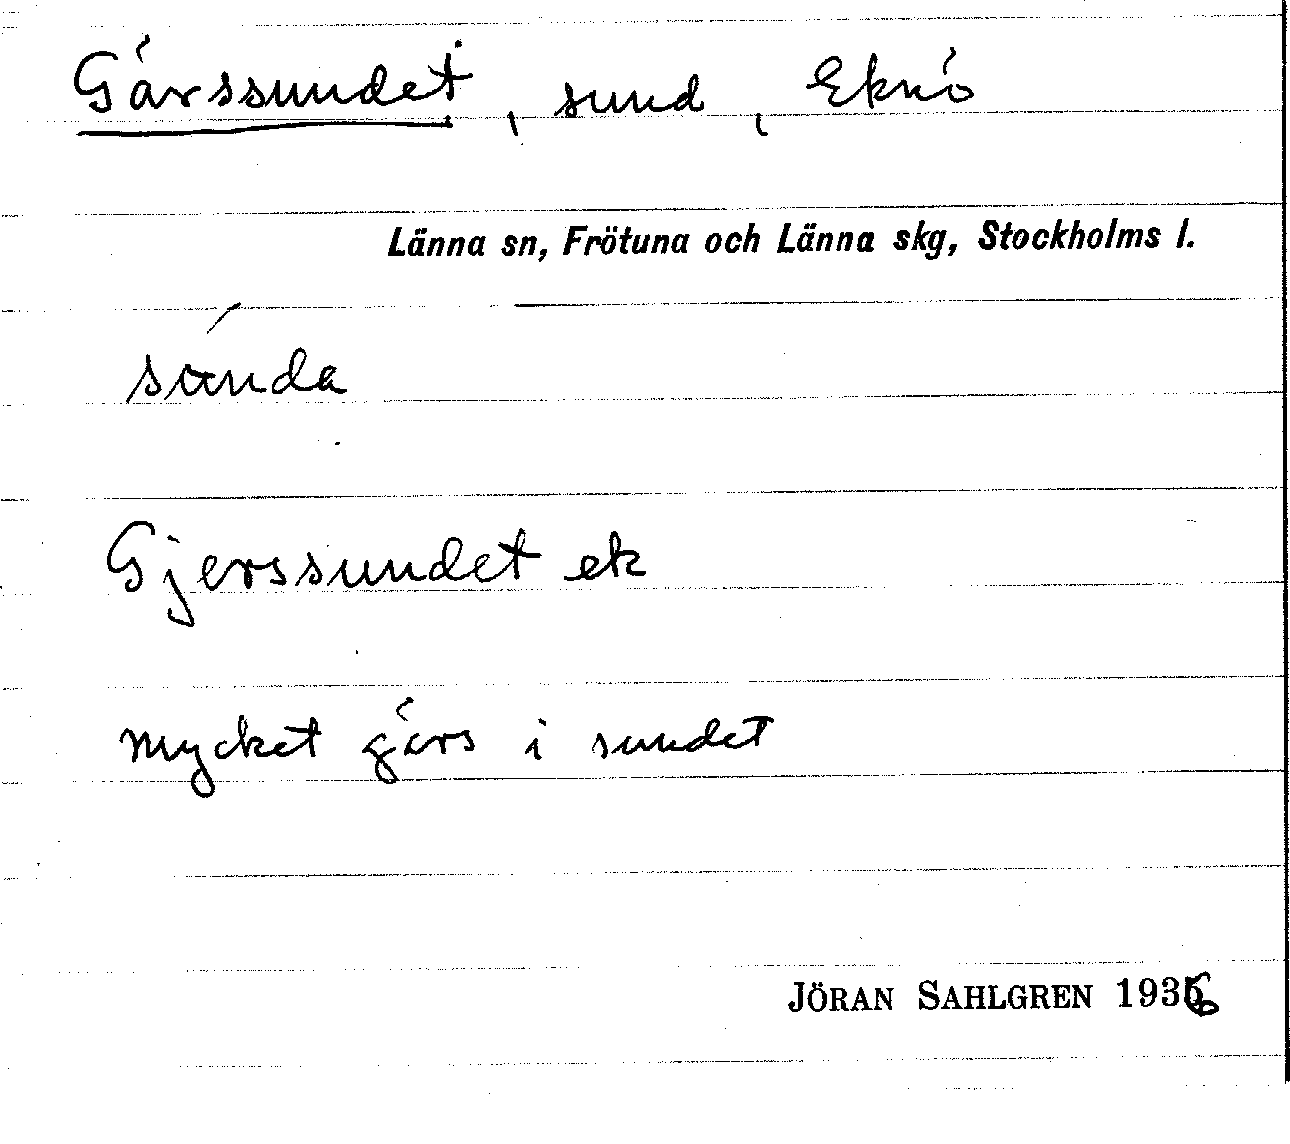 Gärssundet, sund, Eknö
Länna sn, Frötuna och Länna skg, Stockholms l.
súnda
Gjerssundet ek
mycket gärs i sundet
JÖRAN SAHLGREN 1936